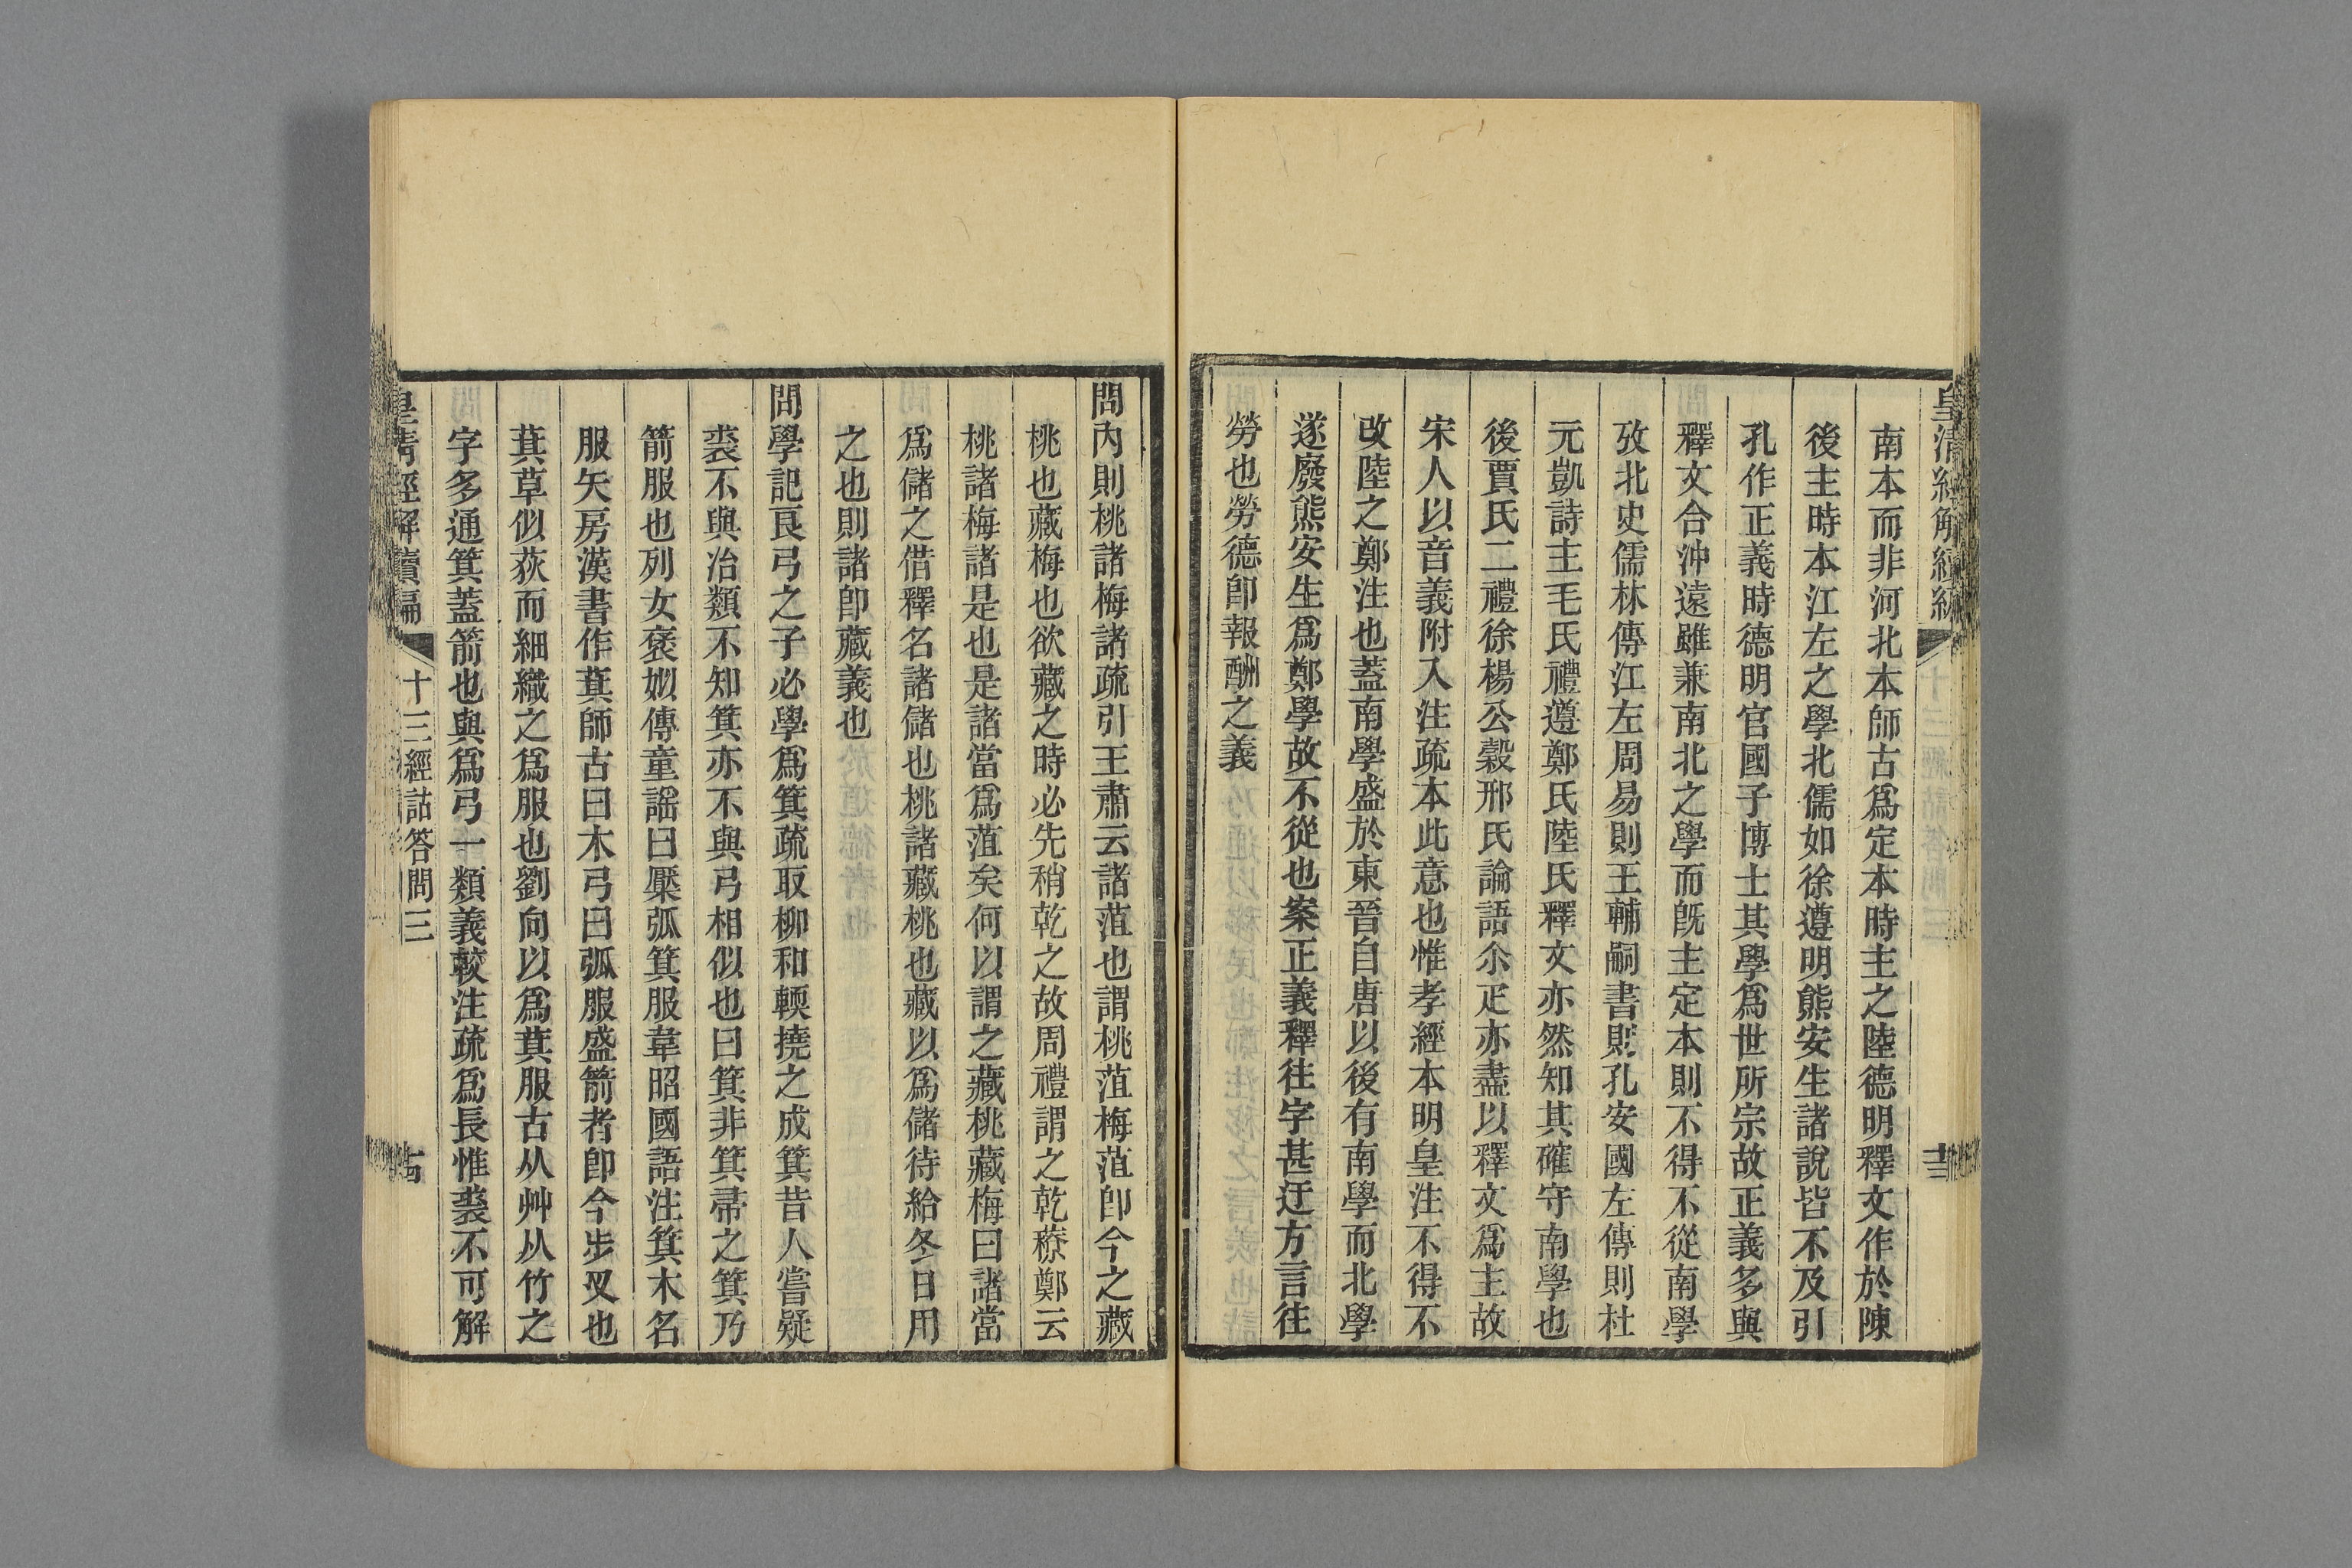 皇清經解續編
十三經詁答問三
十三
南本而非河北本師古爲定本時主之陸德明釋文作於陳
後主時本江左之學北儒如徐遵明熊安生諸說皆不及引
孔作正義時德明官國子博士其學爲世所宗故正義多與
釋文合沖遠雖兼南北之學而旣主定本則不得不從南學
攷北史儒林傳江左周易則王輔嗣書則孔安國左傳則杜
元凱詩主毛氏禮遵鄭氏陸氏釋文亦然知其確守南學也
後賈氏二禮徐楊公穀邢氏論語尒疋亦盡以釋文爲主故
宋人以音義附入注疏本此意也惟孝經本明皇注不得不
改陸之鄭注也蓋南學盛於東晉自唐以後有南學而北學
遂廢熊安生爲鄭學故不從也案正義釋往字甚迂方言往
勞也勞德卽報酬之義
問內則桃諸梅諸疏引王肅云諸菹也謂桃菹梅菹卽今之藏
桃也藏梅也欲藏之時必先稍乾之故周禮謂之乾䕩鄭云
桃諸梅諸是也是諸當爲菹矣何以謂之藏桃藏梅曰諸當
爲儲之借釋名諸儲也桃諸藏桃也藏以爲儲待給冬日用
之也則諸卽藏義也
問學記良弓之子必學爲箕疏取柳和輭撓之成箕昔人嘗疑
裘不與冶類不知箕亦不與弓相似也曰箕非箕帚之箕乃
箭服也列女褒姒傳童謠曰檿弧箕服韋昭國語注箕木名
服矢房漢書作萁師古曰木弓曰弧服盛箭者卽今步叉也
萁草似荻而細織之爲服也劉向以爲萁服古从艸从竹之
字多通箕蓋箭也與爲弓一類義較注疏爲長惟裘不可解
皇清經解續編
十三經詁答問三
十四